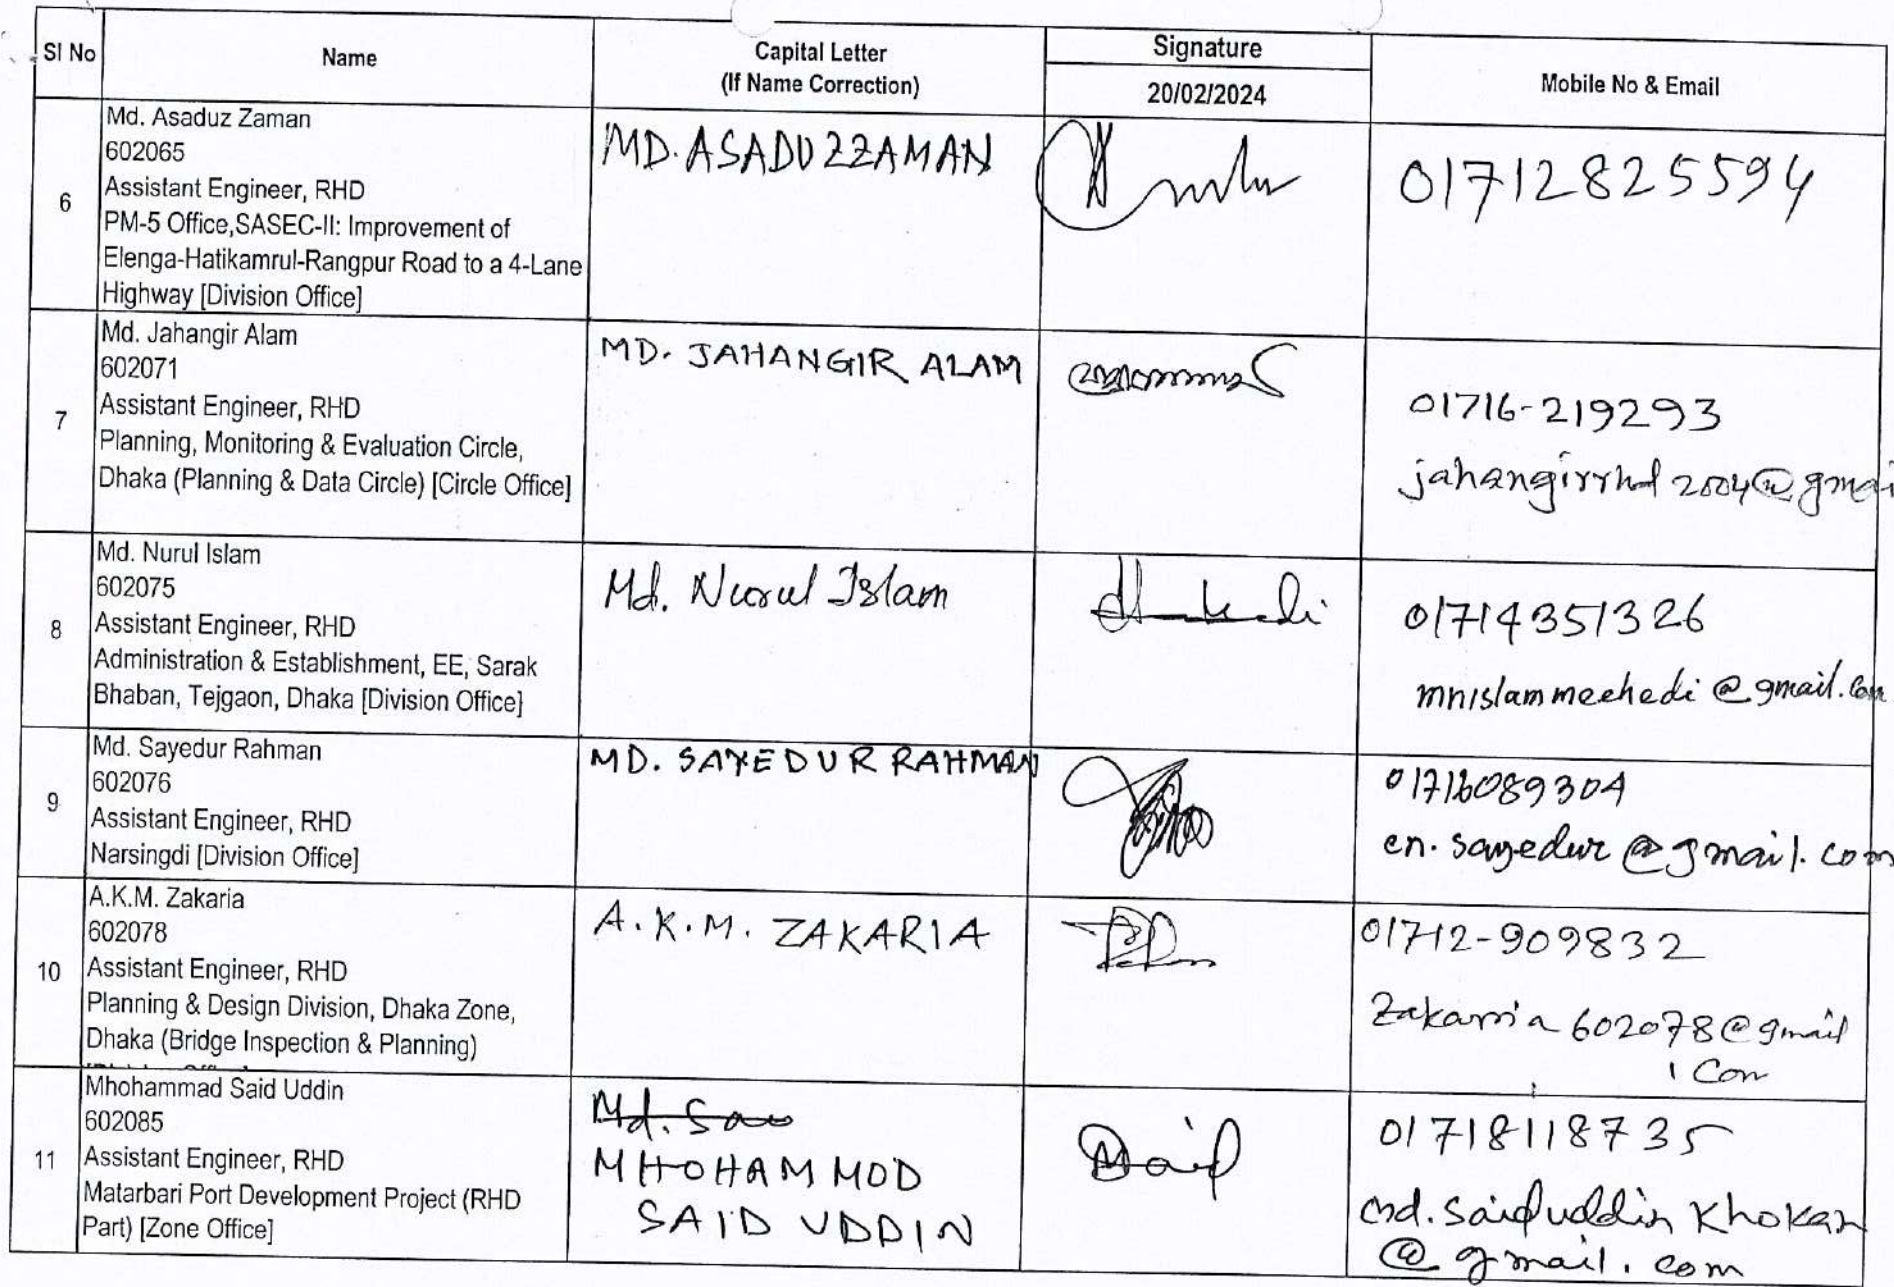 Sl No
Name
Capital Letter
(If Name Correction)
Signature
20/02/2024
Mobile No & Email
6
Md. Asaduz Zaman
602065
Assistant Engineer, RHD
PM-5 Office,SASEC-II: Improvement of
Elenga-Hatikamrul-Rangpur Road to a 4-Lane
Highway [Division Office]
MD. ASADUZZAMAN
01712825594
7
Md. Jahangir Alam
602071
Assistant Engineer, RHD
Planning, Monitoring & Evaluation Circle,
Dhaka (Planning & Data Circle) [Circle Office]
MD. JAHANGIR ALAM
01716-219293
jahangirrhd2004@gmai
8
Md. Nurul Islam
602075
Assistant Engineer, RHD
Administration & Establishment, EE, Sarak
Bhaban, Tejgaon, Dhaka [Division Office]
Md. Nurul Islam
01714351326
mnislammeehedi@gmail.com
9
Md. Sayedur Rahman
602076
Assistant Engineer, RHD
Narsingdi [Division Office]
MD. SAYEDUR RAHMAN
en.sayedur@gmail.com
10
A.K.M. Zakaria
602078
Assistant Engineer, RHD
Planning & Design Division, Dhaka Zone,
Dhaka (Bridge Inspection & Planning)
A.K.M. ZAKARIA
01712-909832
Zakaria602078@gmail
.com
11
Mhohammad Said Uddin
602085
Assistant Engineer, RHD
Matarbari Port Development Project (RHD
Part) [Zone Office]
Md.
MHOHAMMOD
SAID UDDIN
01718118735
md.saifuddin khokan
@gmail.com